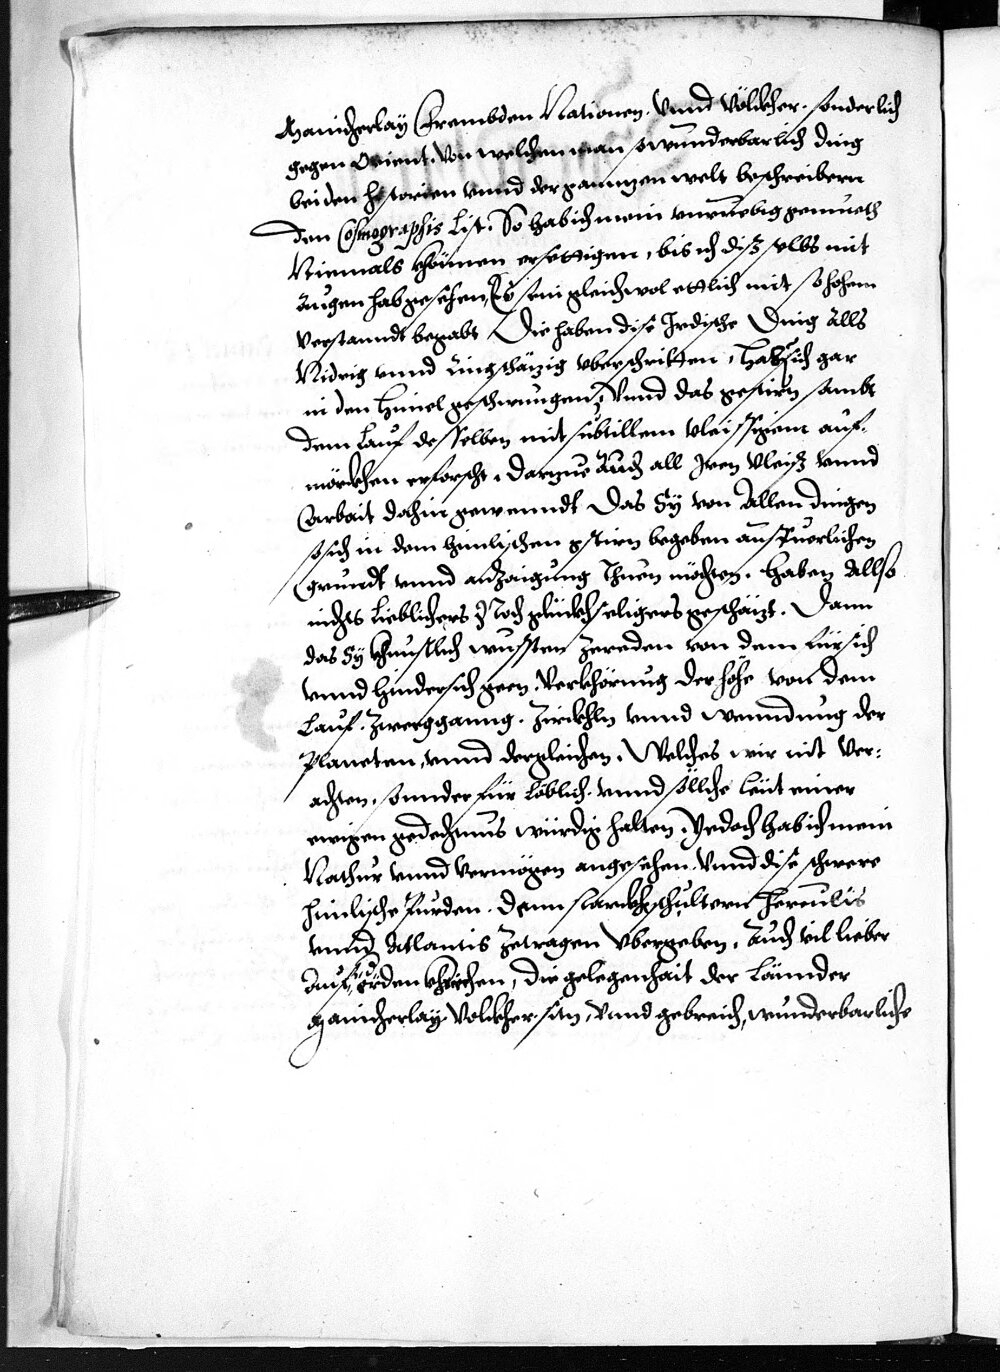 Manicherlay Frembden Nationen. Vnnd Völckher. sonderlich
gegen Orient. Von welchen man so wunderbarlich ding
bei den historien vnnd der ganntzen welt beschreibern
den Cosmographis List. So hab ich mein vnruebig gemueth
Niemals khönnen ersettigen, bis ich diß selbs mit
Augen hab gesehen, Es sein gleichwol ettlich mit so hohem
Verstanndt begabt Die haben dise Irdische Ding Alls
Nidrig vnnd Ringschäzig vberschritten, Hab sich gar
in den Himel geschwungen, Vnnd das gestirn sambt
dem Lauf desselben mit subtillem vleissigem auf-
mörckhen erforscht. Darzue Auch all Iren Vleiß vnnd
Arbait dahin gewenndt Das Sy von Allen dingen
so sich in dem himlischen gstirn begeben ausfüerlichen
grundt vnnd anzaigung Thuen möchten. Haben Allso
nichts Lieblichers Noch glückhseligers geschäzt. Dann
das Sy khunstlich wussten zereden von dem fürsich
vnnd hindersich geen. Verkhörung der höhe von dem
Lauf. Zwergganng. Zirckhln vnnd wenndung der
Planeten, vnnd dergleichen. Welches wir nit Ver-
achten. sonnder für Löblich. vnnd söllche Leüt einer
ewigen gedechtnus würdig halten. Yedoch hab ich mein
Nathur vnnd Vermögen angesehen. Vnnd dise schwere
himlische Purden. Denn starckhen schultern Herculis
vnnd Atlantis Zetragen Vbergeben. Auch vil lieber
Auf der Erden khriechen, Die gelegenhait der Lännder
Manicherlay Völckher. siten, Vnnd gebreich, wunderbarliche